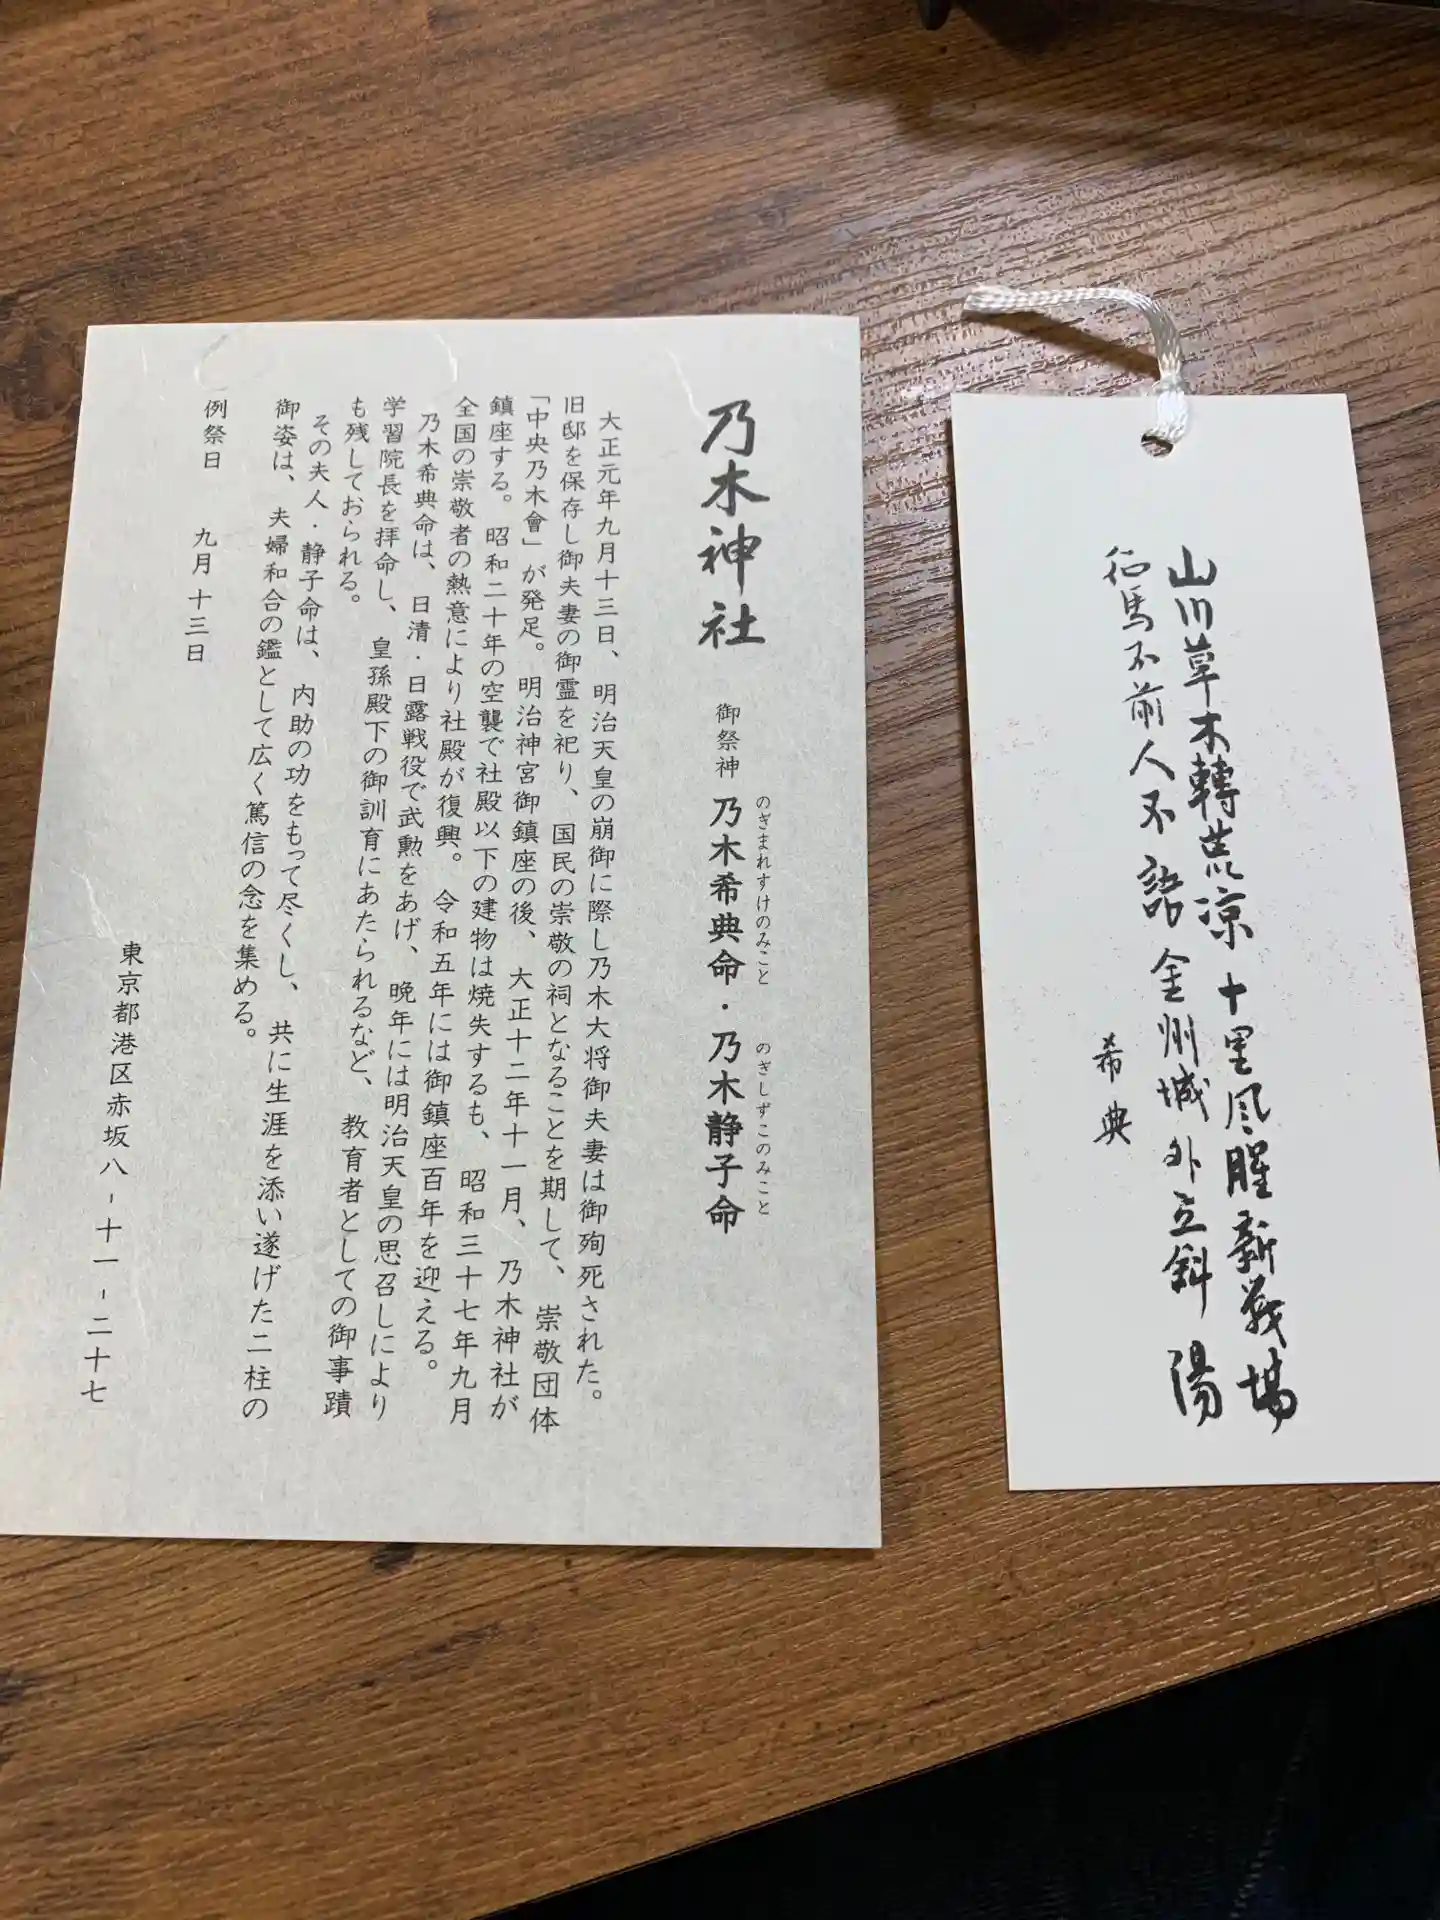 山川草木轉荒涼 十里風腥新戰場
征馬不前人不語 金州城外立斜陽
希典
乃木神社 御祭神 乃木希典命・乃木静子命
のぎまれすけのみこと のぎしずこのみこと
大正元年九月十三日、明治天皇の崩御に際し乃木大将御夫妻は御殉死された。
旧邸を保存し御夫妻の御霊を祀り、国民の崇敬の祠となることを期して、崇敬団体
「中央乃木會」が発足。明治神宮御鎮座の後、大正十二年十一月、乃木神社が
鎮座する。昭和二十年の空襲で社殿以下の建物は焼失するも、昭和三十七年九月
全国の崇敬者の熱意により社殿が復興。令和五年には御鎮座百年を迎える。
乃木希典命は、日清・日露戦役で武勲をあげ、晩年には明治天皇の思召しにより
学習院長を拝命し、皇孫殿下の御訓育にあたられるなど、教育者としての御事蹟
も残しておられる。
その夫人・静子命は、内助の功をもって尽くし、共に生涯を添い遂げた二柱の
御姿は、夫婦和合の鑑として広く篤信の念を集める。
例祭日 九月十三日
東京都港区赤坂八-十一-二十七